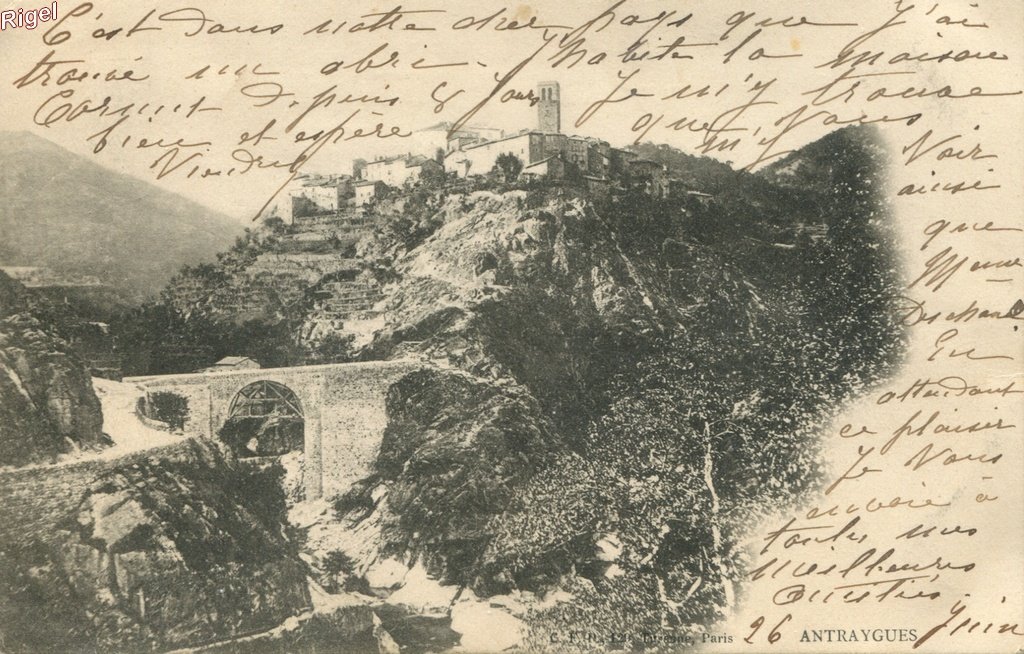 Rigel
C'est dans notre cher pays que j'ai
trouvé un abri. J'habite la maison
Cornut depuis 8 jours je m'y trouve
bien et espère que vous m'y
Viendrez
Voir
ainsi
que
Mme
Deschan
En
attendant
ce plaisir
Je Vous
envoie à
toutes mes
meilleures
Amitiés
26 Juin
C. F. 120, Paris
ANTRAYGUES